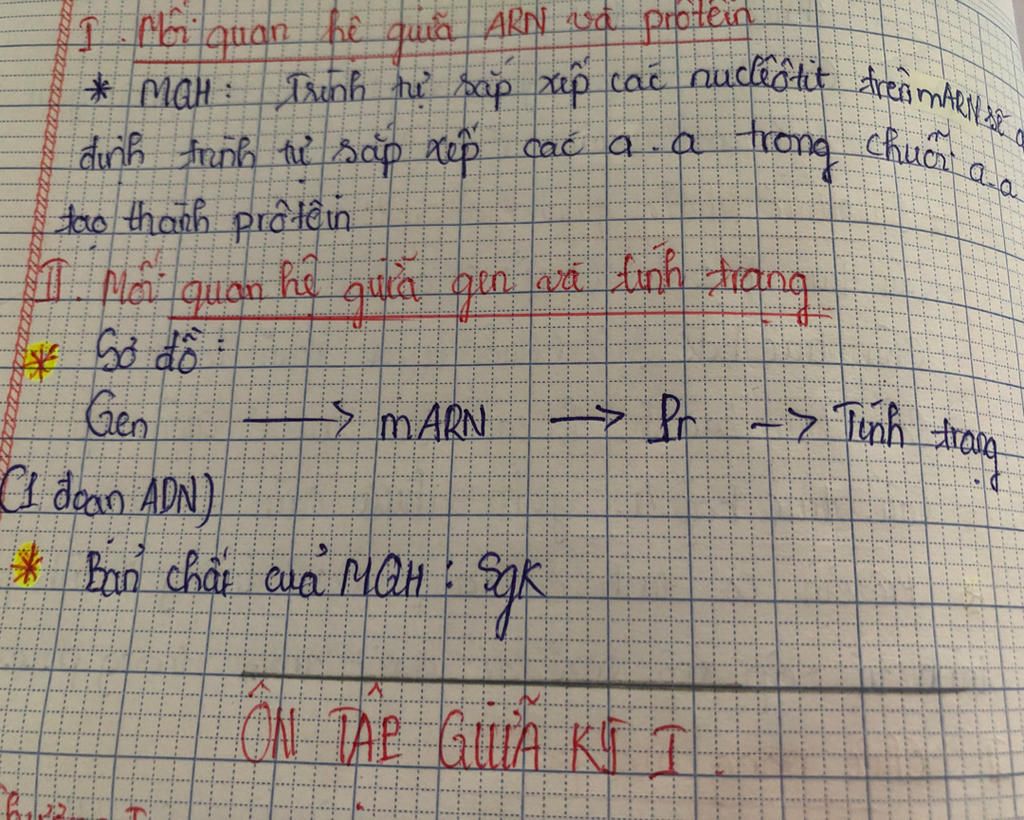 I. Mối quan hệ giữa ARN và prôtêin
* MQH: Trình tự sắp xếp các nuclêôtit trên mARN sẽ
định trình tự sắp xếp các a.a trong chuỗi a.a
tạo thành prôtêin
II. Mối quan hệ giữa gen và tính trạng
* Sơ đồ:
Gen → mARN → Pr → Tính trạng
(1 đoạn ADN)
* Bản chất của MQH: Sgk
ÔN TẬP GIỮA KỲ I.